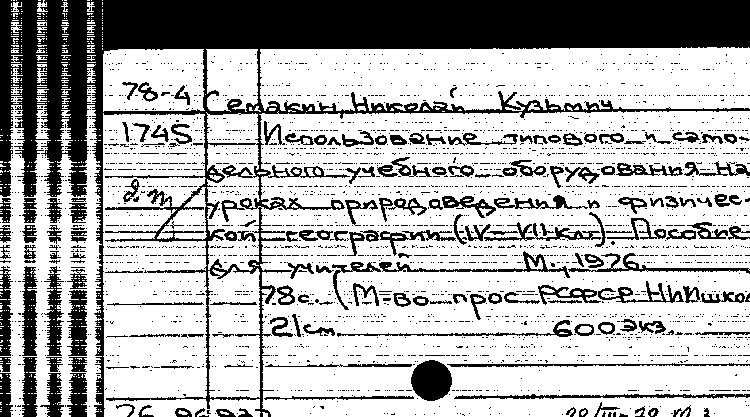 78-4 Семакин, Николай Кузьмич.
1745 Использование типового и само-
дельного учебного оборудования на
2 т уроках природоведения и физичес-
кой географии (IV-VII кл.). Пособие
для учителей. М., 1976.
78 с. (М-во прос РСФСР. НИИ школ
21 см. 600 экз.